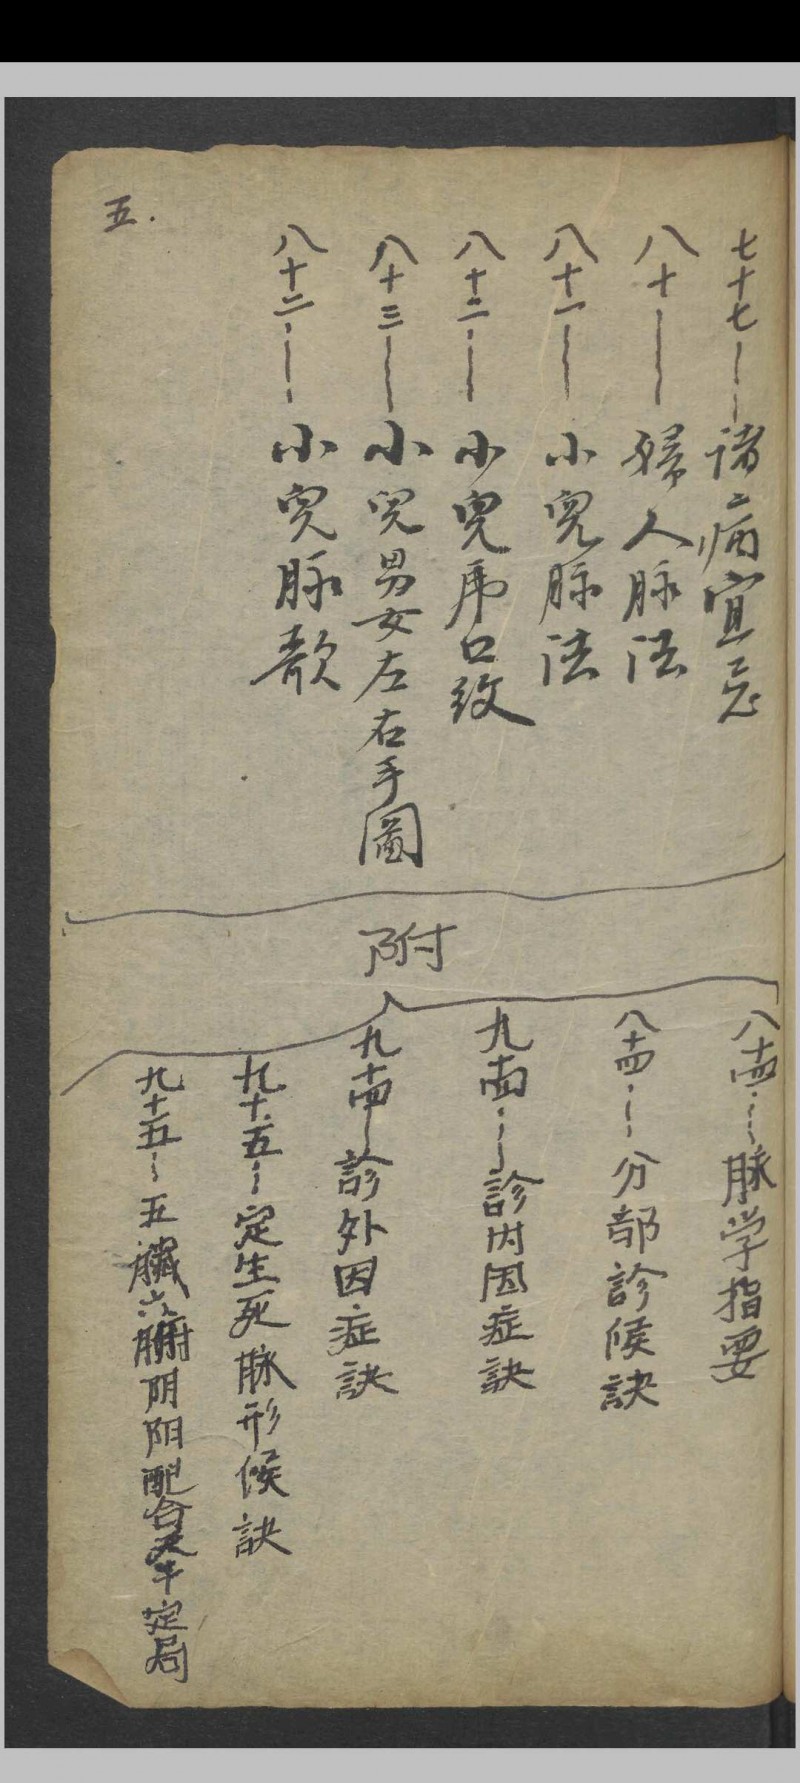 七十七 诸病宜忌
八十 婦人脉法
八十一 小兒脉法
八十二 小兒虎口紋
八十三 小兒男女左右手圖
八十二 小兒脉歌
五.
附
八十四 脉学指要
八十四 分部診候訣
九十四 診内因症訣
九十四 診外因症訣
九十五 定生死脉形候訣
九十五 五臟六腑阴阳配合天干定局